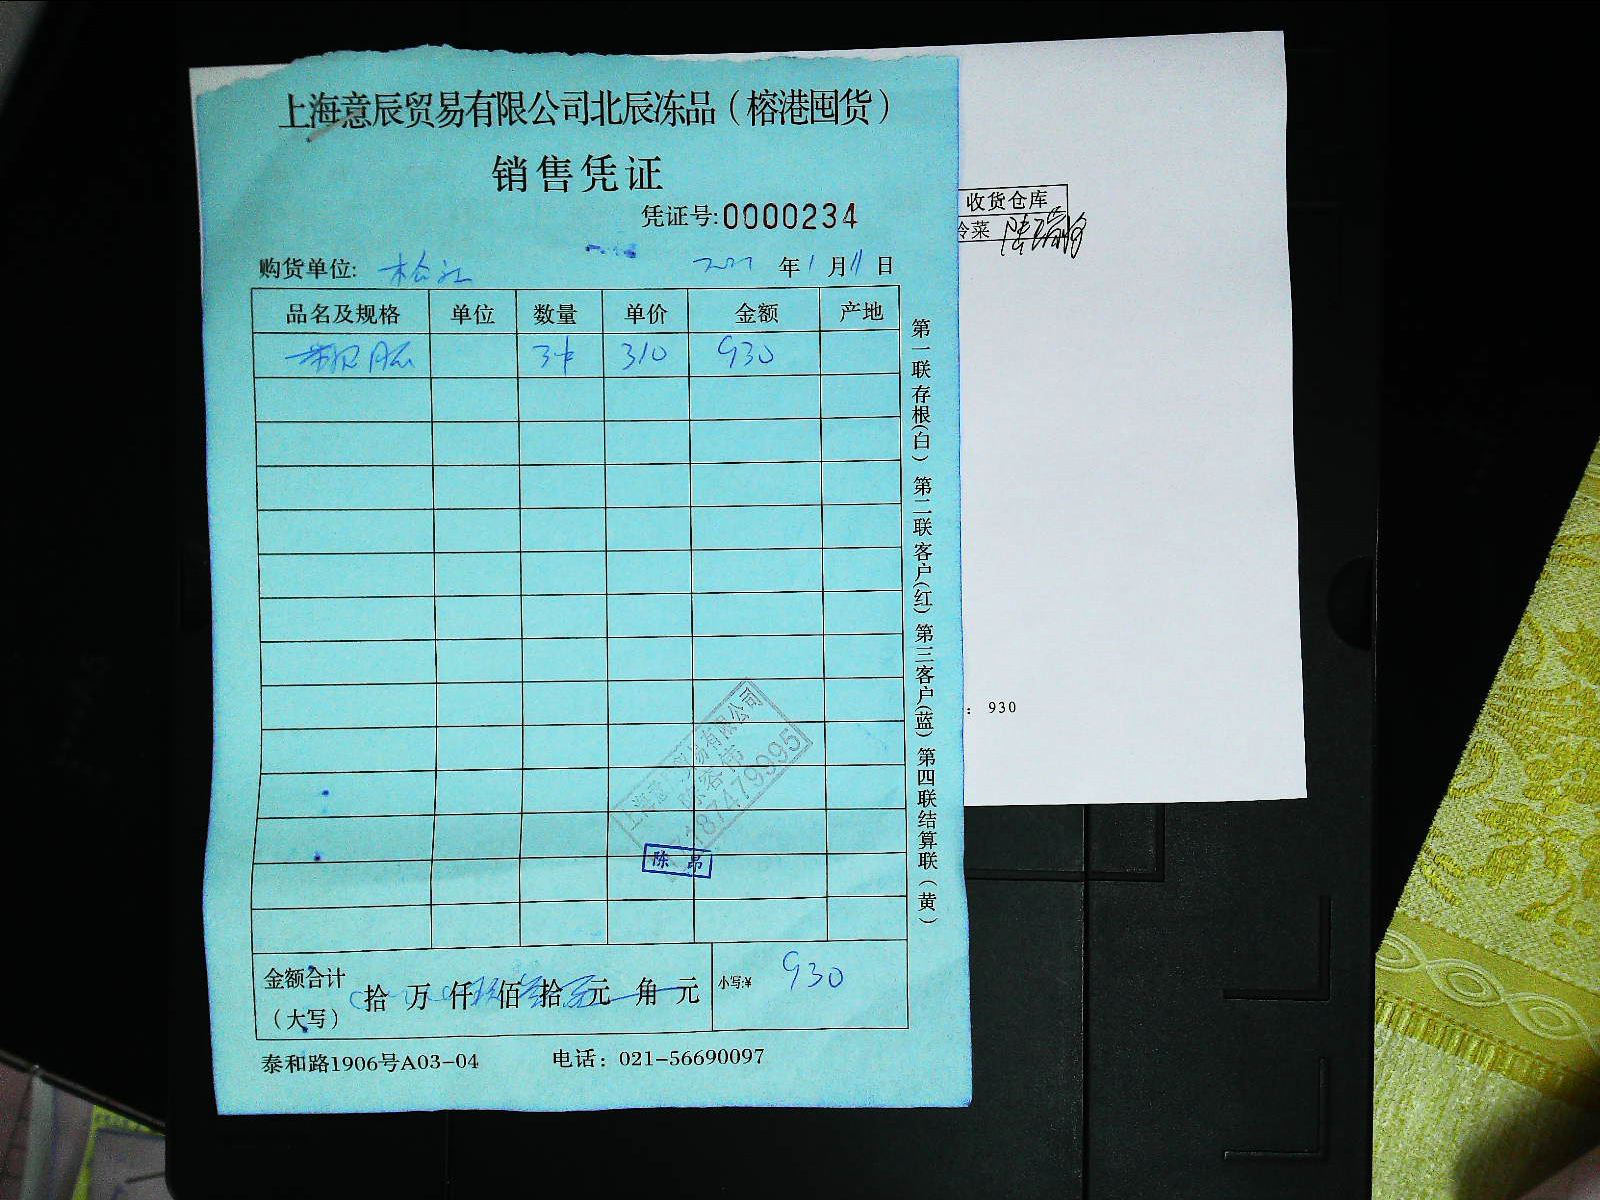 上海意辰贸易有限公司北辰冻品（榕港囤货）
销售凭证
凭证号:0000234
购货单位: 松江 年1月11日
品名及规格 单位 数量 单价 金额 产地
3卡 310 930
第一联存根(白) 第二联客户(红) 第三客户(蓝) 第四联结算联(黄)
陈昂
金额合计
（大写）
拾 万 仟 佰 拾 元 角 元
小写:¥ 930
泰和路1906号A03-04 电话：021-56690097
收货仓库
冷菜
：930